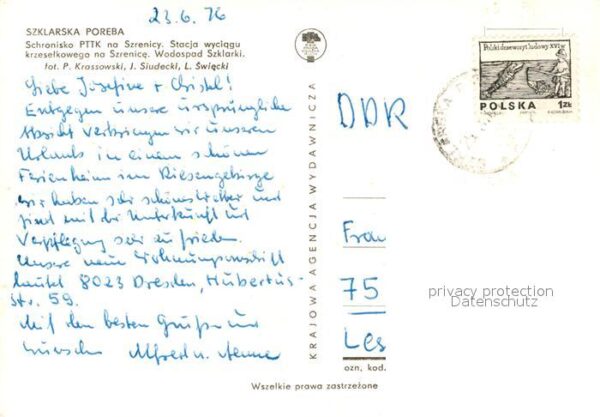 23.6.76
SZKLARSKA POREBA
Schronisko PTTK na Szrenicy. Stacja wyciągu
krzesełkowego na Szrenicę. Wodospad Szklarki.
fot. P. Krassowski, J. Siudecki, L. Święcki
Liebe Josefine + Christel!
Entgegen unsere ursprüngliche
Absicht verbringen wir unseren
Urlaub in einem schönen
Ferienheim im Riesengebirge
Wir haben sehr schönes Wetter und
sind mit der Unterkunft und
Verpflegung sehr zufrieden.
Unsere neue Wohnungsanschrift
lautet 8023 Dresden, Hubertus-
str. 59.
Mit den besten Grüßen und
Alfred u.
KRAJOWA AGENCJA WYDAWNICZA
Polski drzeworyt ludowy XVI w
POLSKA 1ZŁ
DDR
Frau
75
Les
privacy protection
Datenschutz
ozn. kod.
Wszelkie prawa zastrzeżone